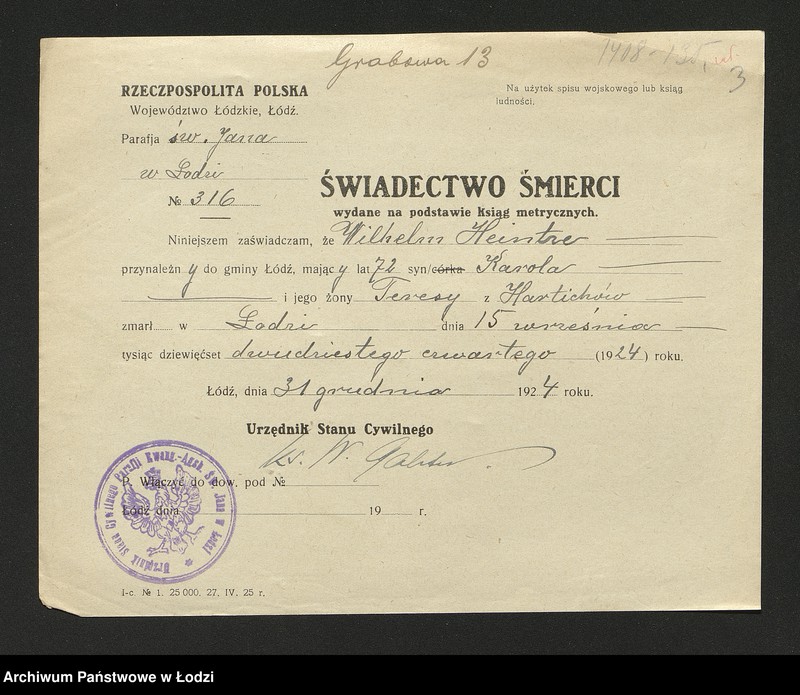 Grabowa 13
1908-135,
3
RZECZPOSPOLITA POLSKA
Województwo Łódzkie, Łódź.
Na użytek spisu wojskowego lub ksiąg
ludności,
Parafja św. Jana
w Łodzi
№ 316
ŚWIADECTWO ŚMIERCI
wydane na podstawie ksiąg metrycznych.
Niniejszem zaświadczam, że Wilhelm Heintze
przynależn y do gminy Łódź, mając y lat 72 syn/córka Karola
i jego żony Teresy z Hartichów
zmarł w Łodzi dnia 15 września
tysiąc dziewięćset dwudziestego czwartego (1924) roku.
Łódź, dnia 31 grudnia 1924 roku.
Urzędnik Stanu Cywilnego
ks. W.
P. Włączyć do dow. pod №
Łódź dnia 19 r.
Urzędnik Stanu Cywilnego Parafji Ewang.-Augsb. Św. Jana w Łodzi
I-c. № 1. 25 000. 27. IV. 25 r.
Archiwum Państwowe w Łodzi